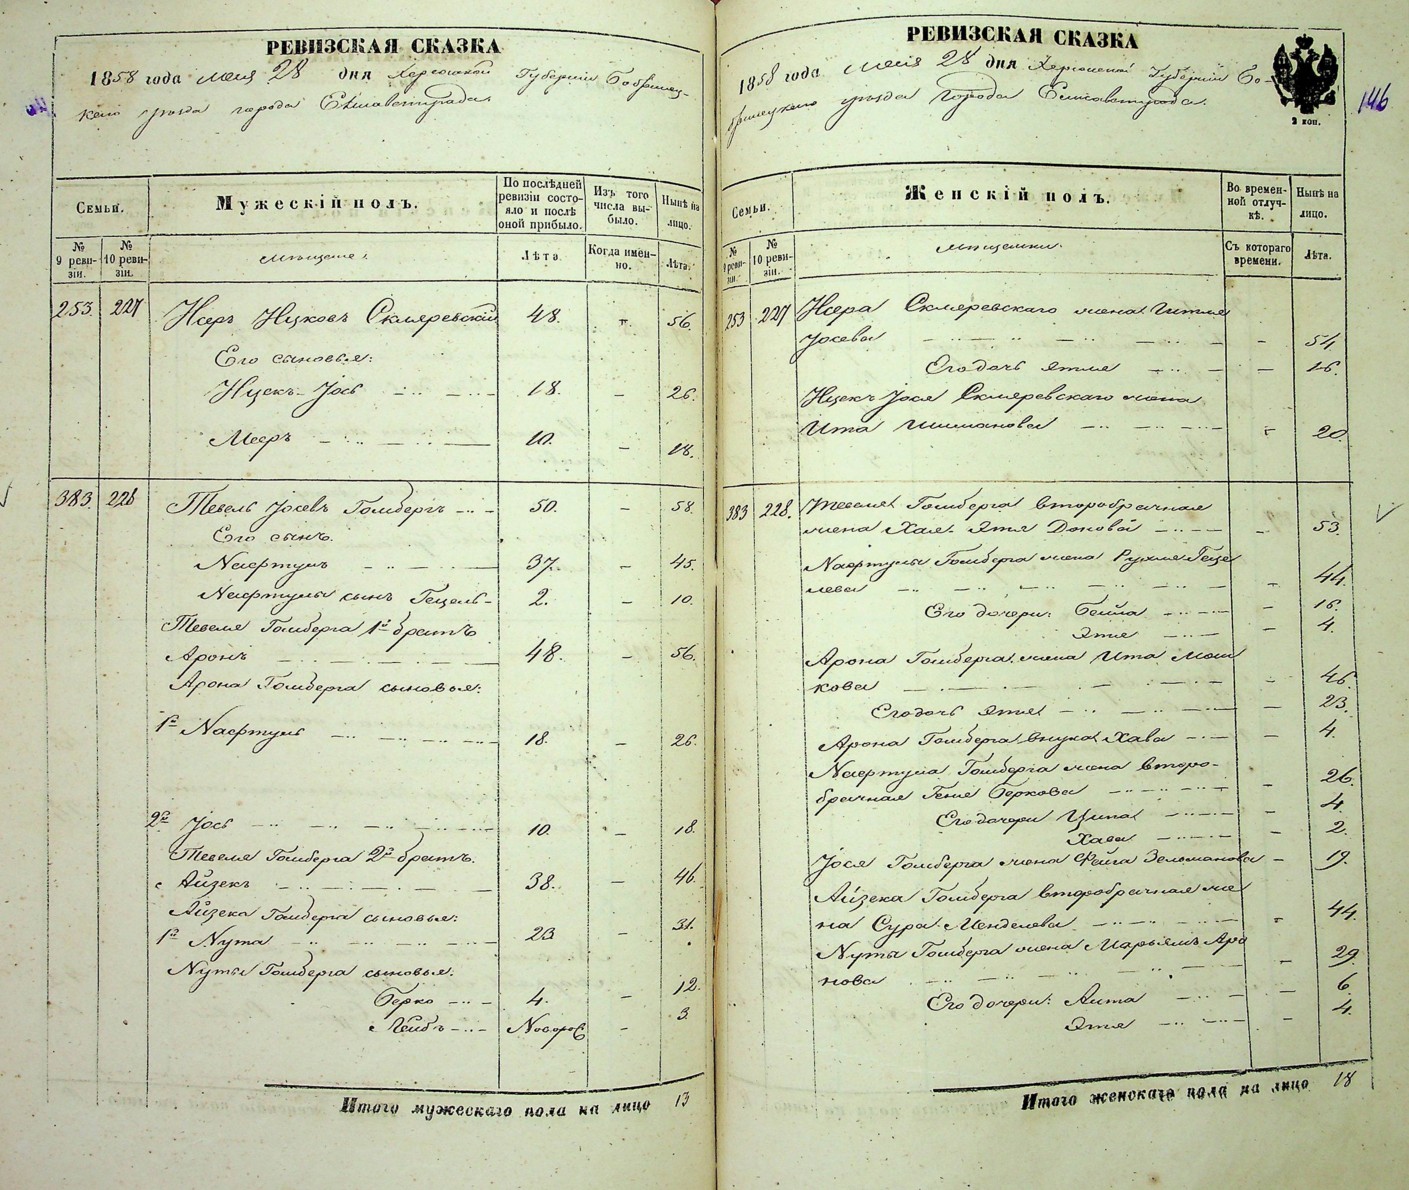 РЕВИЗСКАЯ СКАЗКА
1858 года мая 28 дня Херсонской Губернии Бобринец-
каго уѣзда города Елисаветграда
Семьи.
Мужескій полъ.
По послѣдней ревизіи состояло и послѣ оной прибыло.
Изъ того числа выбыло.
Нынѣ на лицо.
№ 9 ревизіи.
№ 10 ревизіи.
мѣщане:
Лѣта.
Когда именно.
Лѣта.
253. 227 Исеръ Ицковъ Скляревскій 48. 56.
Его сыновья:
Ицекъ-Іось 18. – 26.
Мееръ 10. – 18.
383. 228 Тевель Іосевъ Гомбергъ 50. – 58.
Его сынъ.
Нафтулъ 37. – 45.
Нафтулы сынъ Гецель 2. – 10.
Тевеля Гомберга 1й братъ
Аронъ 48. – 56.
Арона Гомберга сыновья:
1й Нафтулъ 18. – 26.
2й Іось 10. – 18.
Тевеля Гомберга 2й братъ.
Айзекъ 38. – 46.
Айзека Гомберга сыновья:
1й Нута 23 – 31.
Нуты Гомберга сыновья:
Берко 4. – 12.
Лейбъ Новорос – 3.
Итого мужескаго пола на лицо 13
РЕВИЗСКАЯ СКАЗКА
1858 года мая 28 дня Херсонской Губерніи Бо-
бринецкаго уѣзда города Елисаветграда.
2 коп.
146
Семьи.
Женскій полъ.
Во временной отлучкѣ.
Нынѣ на лицо.
№ 9 ревизіи.
№ 10 ревизіи.
мѣщанки.
Съ котораго времени.
Лѣта.
253 227 Исера Скляревскаго жена Итля
Іосева – 54
Его дочь Этля – 16.
Ицекъ Іося Скляревскаго жена
Ита Шимонова 20.
383 228. Тевеля Гомберга второбрачная
жена Хая-Этя – 53.
Нафтулы Гомберга жена Рухля Геце
лева – 44.
Его дочери: Бейла – 16.
Этя – 4.
Арона Гомберга жена Ита Мош
кова – 46.
Его дочь Этля – 23.
Арона Гомберга внука Хава – 4.
Нафтула Гомберга жена второ-
брачная Геня Беркова – 26.
Его дочери Ципа – 4.
Хава – 2.
Іося Гомберга жена Фейга Зельманова – 19.
Айзека Гомберга второбрачная же
на Сура Менделева – 44.
Нуты Гомберга жена Марьямъ Аро
нова – 29.
Его дочери: Аита – 6.
Этя – 4.
Итого женскаго пола на лицо 18